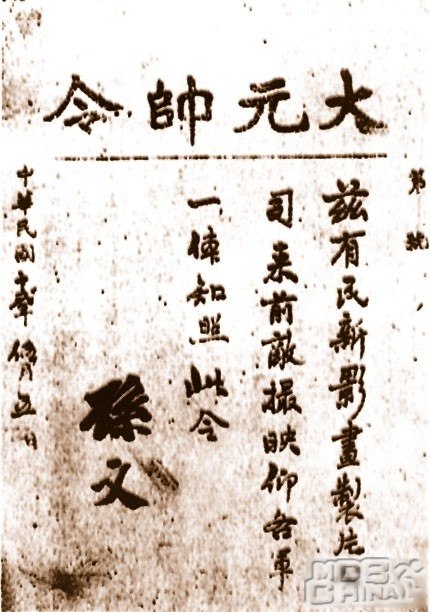 大元帥令
第 號
茲有民新影畫製片
司來前敵撮映仰各軍
一体知照此令
孫文
中華民國十年月五日
MDBCHINA